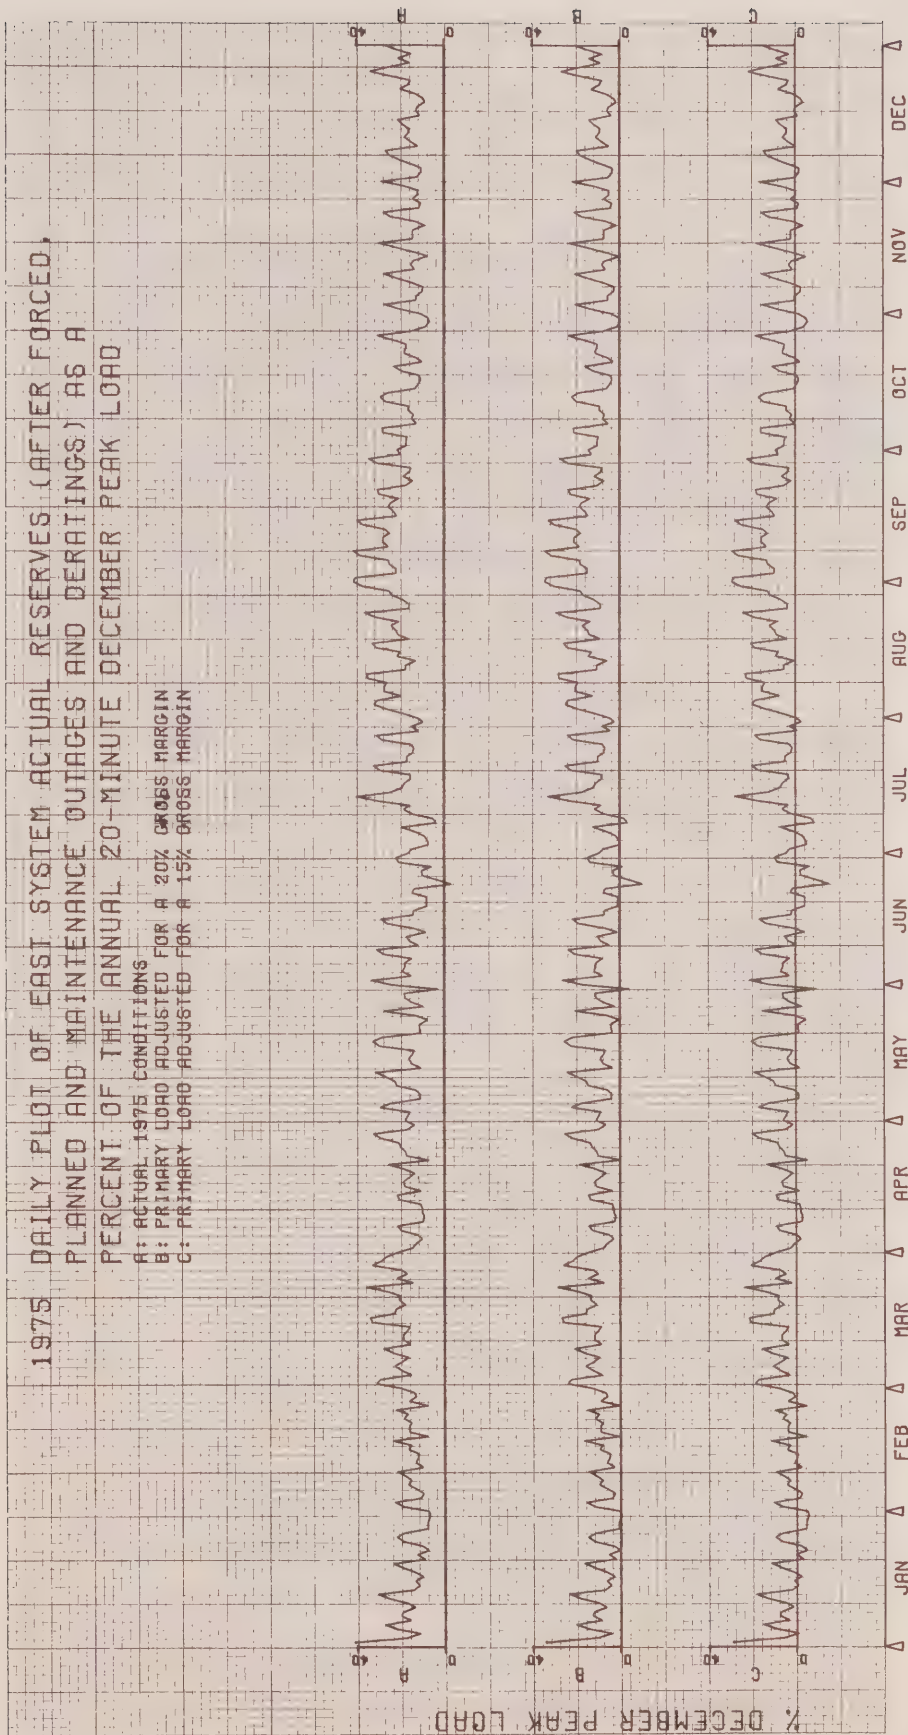 1975 DAILY PLOT OF EAST SYSTEM ACTUAL RESERVES (AFTER FORCED,
PLANNED AND MAINTENANCE OUTAGES AND DERATINGS) AS A
PERCENT OF THE ANNUAL 20-MINUTE DECEMBER PEAK LOAD
A: ACTUAL 1975 CONDITIONS
B: PRIMARY LOAD ADJUSTED FOR A 20% GROSS MARGIN
C: PRIMARY LOAD ADJUSTED FOR A 15% GROSS MARGIN
40 A 0
40 A 0
40 B 0
40 B 0
40 C 0
40 C 0
% DECEMBER PEAK LOAD
JAN FEB MAR APR MAY JUN JUL AUG SEP OCT NOV DEC